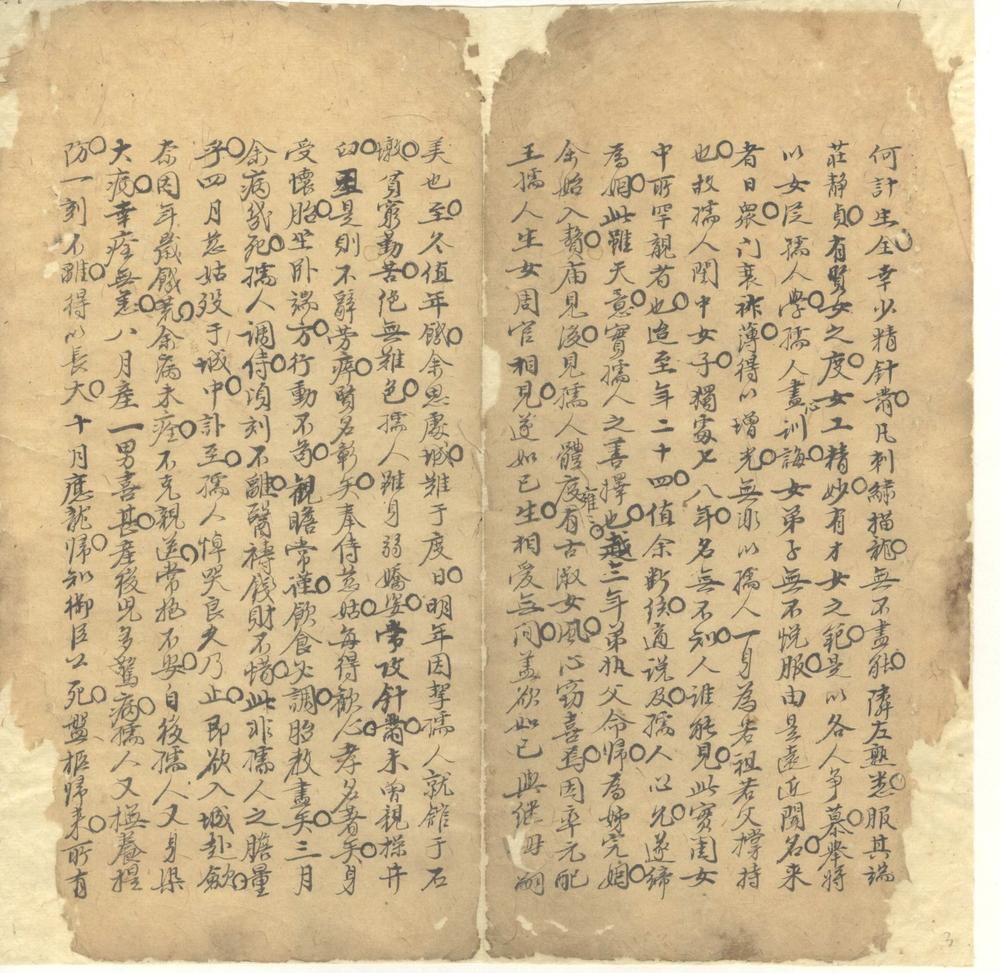 何計生全幸少精針黹凡刺繡描龍無不盡能隣左懃悉服其端
莊静貞有賢女之度女工精妙有才女之範是以各人争慕舉將
以女從孺人學孺人盡心訓誨女弟子無不悅服由是遠近聞名来
者日衆门衰祚薄得以增光無非以孺人一身為若祖若父撐持
也故孺人閨中女子獨處七八年名無不知人谁能見此實閨女
中所罕親者也迨至年二十四值余斷絃適说及孺人以允遂締
為姻此雖天意實孺人之善擇也越三年弟执父命歸為婦完姻
余始入贅庙見後見孺人體度雍有古淑女風心窃喜焉因率元配
王孺人生女周官相見遂如已生相愛無间盖欲如已與继母嗣
美也至冬值年饑余思處城难于度日明年因挈孺人就館于石
墩貧窮勤苦绝無难色孺人雖身弱嬌姿常攻針黹未曽親操井
臼至是則不辭劳瘁賢名彰矣奉侍慈姑每得歡心孝名著矣身
受懷胎坐卧端方行動不苟觀瞻常謹飲食必調胎教盡矣三月
余病幾死孺人調侍湏刻不離醫禱錢財不惜此非孺人之膽量
乎四月慈姑殁于城中訃至孺人悼哭良久乃止即欲入城赴斂
奈因年歲饑荒余病未痊不克親送常抱不安自後孺人又身染
大病幸痊無恙八月産一男喜甚産後兒多驚病孺人又極養提
防一刻不離得以長大十月應龍歸知柳臣公死盤柩歸来所有